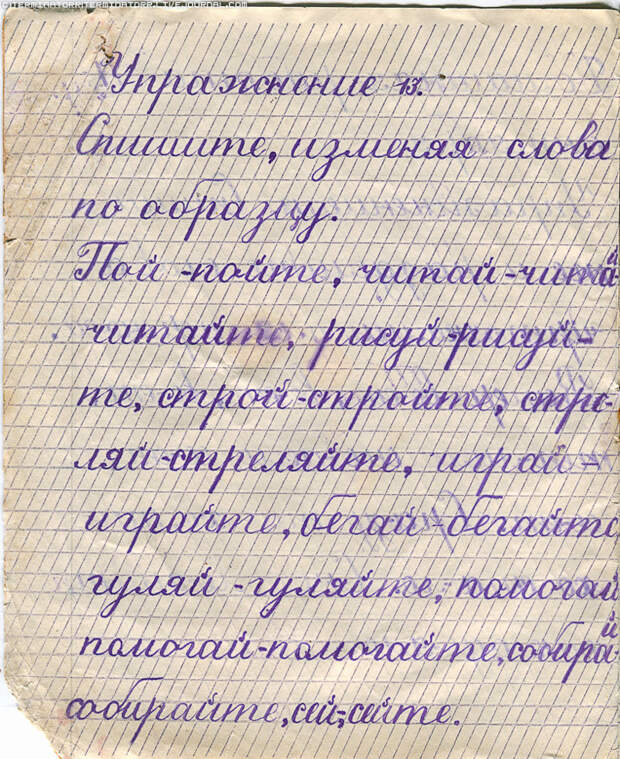 CITERMINATORRITERMINATORR1.LIVEJOURNAL.COM
Упражнение 13.
Спишите, изменяя слова
по образцу.
Пой - пойте, читай - читай
читайте, рисуй-рисуй-
те, строй-стройте, стре-
ляй-стреляйте, играй -
играйте, бегай - бегайте
гуляй - гуляйте, помогай
помогай-помогайте, собирай-
собирайте, сей-сейте.